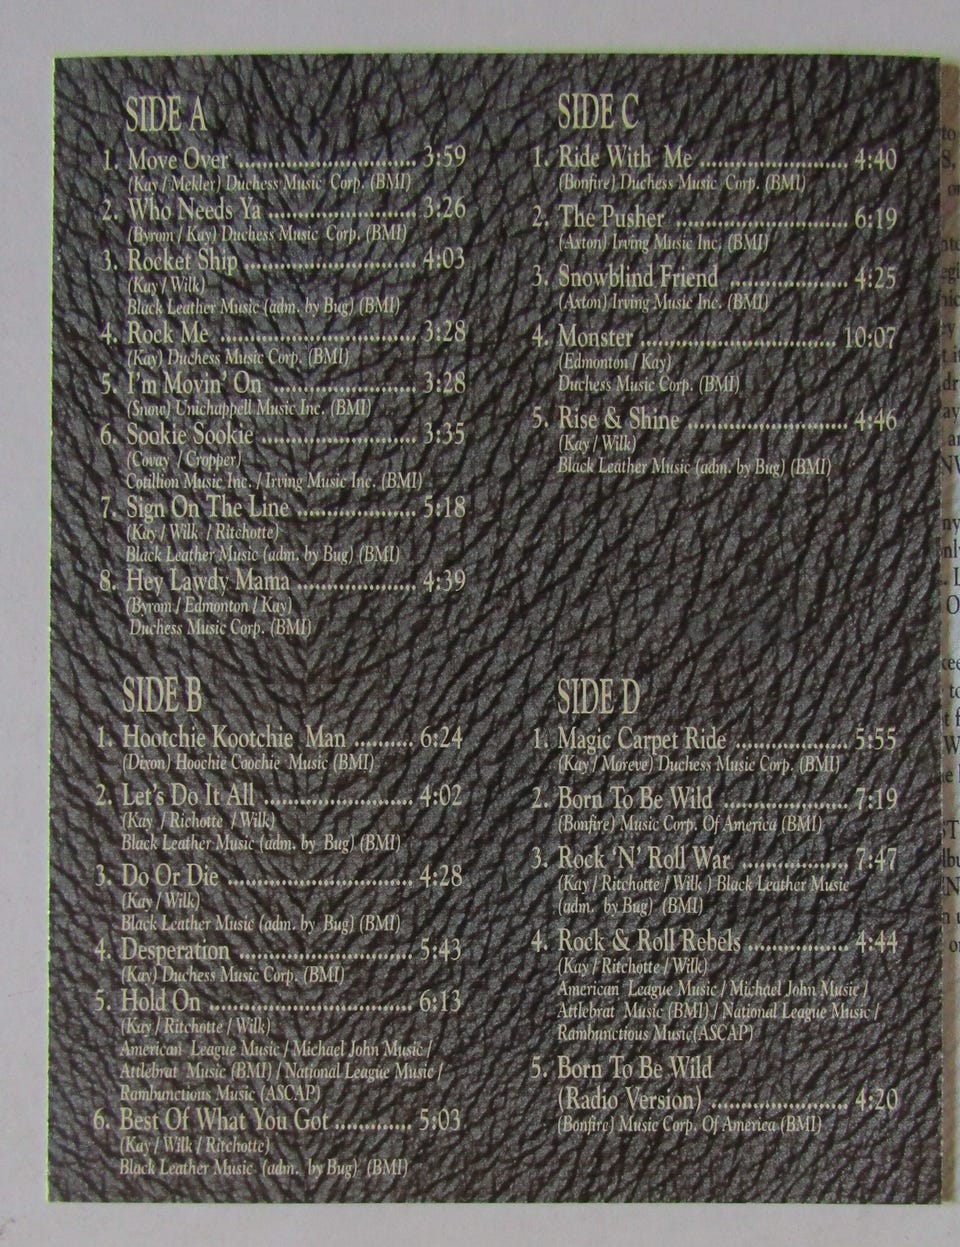 SIDE A
1. Move Over ........................ 3:59
(Kay / Mekler) Duchess Music Corp. (BMI)
2. Who Needs Ya .................... 3:26
(Byrom / Kay) Duchess Music Corp. (BMI)
3. Rocket Ship ....................... 4:03
(Kay / Wilk)
Black Leather Music (adm. by Bug) (BMI)
4. Rock Me ........................... 3:28
(Kay) Duchess Music Corp. (BMI)
5. I'm Movin' On ................... 3:28
(Snow) Unichappell Music Inc. (BMI)
6. Sookie Sookie ..................... 3:35
(Covay / Cropper)
Cotillion Music Inc. / Irving Music Inc. (BMI)
7. Sign On The Line ................ 5:18
(Kay / Wilk / Ritchotte)
Black Leather Music (adm. by Bug) (BMI)
8. Hey Lawdy Mama ................ 4:39
(Byrom / Edmonton / Kay)
Duchess Music Corp. (BMI)
SIDE B
1. Hootchie Kootchie Man .......... 6:24
(Dixon) Hoochie Coochie Music (BMI)
2. Let's Do It All .................... 4:02
(Kay / Richotte / Wilk)
Black Leather Music (adm. by Bug) (BMI)
3. Do Or Die ......................... 4:28
(Kay / Wilk)
Black Leather Music (adm. by Bug) (BMI)
4. Desperation ....................... 5:43
(Kay) Duchess Music Corp. (BMI)
5. Hold On ........................... 6:13
(Kay / Ritchotte / Wilk)
American League Music / Michael John Music /
Attlebrat Music (BMI) / National League Music /
Rambunctious Music (ASCAP)
6. Best Of What You Got ............ 5:03
(Kay / Wilk / Ritchotte)
Black Leather Music (adm. by Bug) (BMI)
SIDE C
1. Ride With Me .................... 4:40
(Bonfire) Duchess Music Corp. (BMI)
2. The Pusher ....................... 6:19
(Axton) Irving Music Inc. (BMI)
3. Snowblind Friend ................ 4:25
(Axton) Irving Music Inc. (BMI)
4. Monster ........................... 10:07
(Edmonton / Kay)
Duchess Music Corp. (BMI)
5. Rise & Shine ..................... 4:46
(Kay / Wilk)
Black Leather Music (adm. by Bug) (BMI)
SIDE D
1. Magic Carpet Ride ................ 5:55
(Kay / Moreve) Duchess Music Corp. (BMI)
2. Born To Be Wild ................. 7:19
(Bonfire) Music Corp. Of America (BMI)
3. Rock 'N' Roll War ............... 7:47
(Kay / Ritchotte / Wilk ) Black Leather Music
(adm. by Bug) (BMI)
4. Rock & Roll Rebels .............. 4:44
(Kay / Ritchotte / Wilk)
American League Music / Michael John Music /
Attlebrat Music (BMI) / National League Music /
Rambunctious Music(ASCAP)
5. Born To Be Wild
(Radio Version) ................... 4:20
(Bonfire) Music Corp. Of America (BMI)